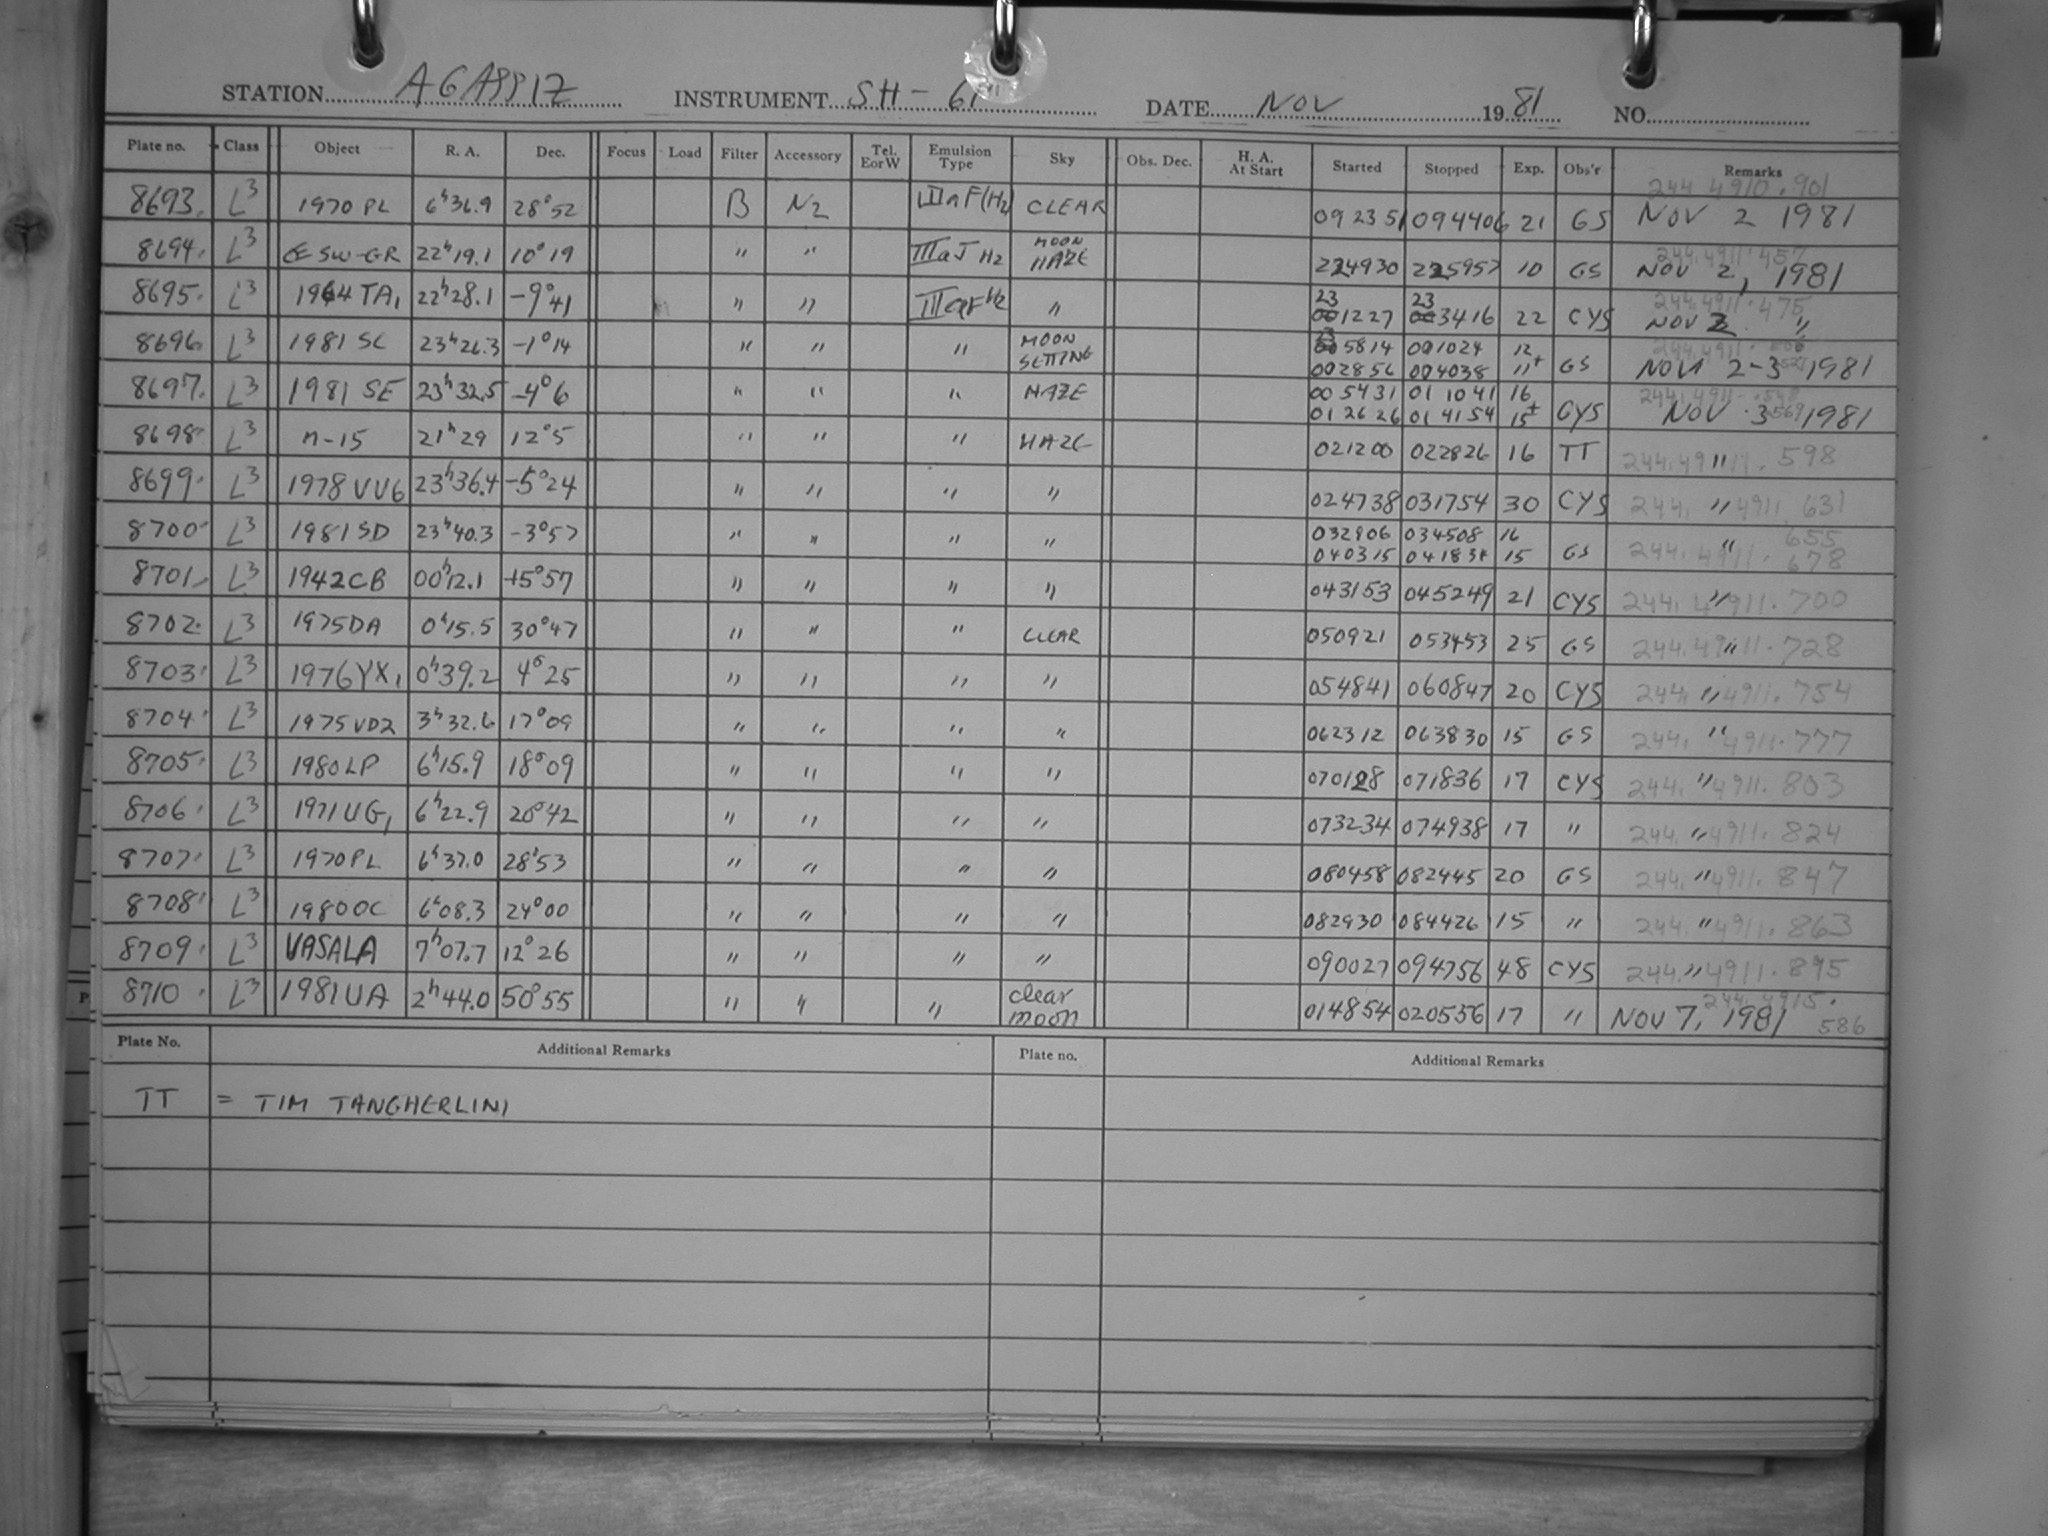 STATION AGASSIZ INSTRUMENT SH-61 DATE NOV 1981 NO.
Plate no. Class Object R. A. Dec. Focus Load Filter Accessory Tel. E or W Emulsion Type Sky Obs. Dec. H. A. At Start Started Stopped Exp. Obs'r Remarks
244 4910.901
8693. L3 1970 PL 6h36.9 28°52 B N2 CLEAR 092351 094406 21 GS NOV 2 1981
8694. L3 SW-GR 22h19.1 10°19 " " IIIaJ H2 MOON HAZE 224930 225957 10 GS 244.4911.457 NOV 2, 1981
8695. L3 1964 TA1 22h28.1 -9°41 " " IIIaF H2 " 231227 233416 22 CYS 244.4911.475 NOV 2 "
8696 L3 1981 SC 23h26.3 -1°14 " " " MOON SETTING 5814 001024 12
002856 004038 11+ GS NOV 2-3 1981
8697. L3 1981 SE 23h32.5 -4°6 " " " HAZE 005431 011041 16
012626 014154 15+ CYS NOV. 3 1981
8698 L3 n-15 21h29 12°5 " " " HAZE 021200 022826 16 TT 244.4911.598 "
8699. L3 1978 VV6 23h36.4 -5°24 " " " " 024738 031754 30 CYS 244. " 4911.631
8700 L3 1981 SD 23h40.3 -3°57 " " " " 032906 034508 16 655
040315 041831 15 GS 244. " 4911.678
8701 L3 1942CB 00h12.1 +5°57 " " " " 043153 045249 21 CYS 244.4911.700 "
8702. L3 1975DA 0h15.5 30°47 " " " CLEAR 050921 053453 25 GS 244.4911.728 "
8703. L3 1976YX1 0h39.2 4°25 " " " " 054841 060847 20 CYS 244. " 4911.754
8704 L3 1975 VD2 3h32.6 17°09 " " " " 062312 063830 15 GS 244. " 4911.777
8705. L3 1980LP 6h15.9 18°09 " " " " 070128 071836 17 CYS 244. " 4911.803
8706. L3 1971UG1 6h22.9 20°42 " " " " 073234 074938 17 " 244. " 4911.824
8707. L3 1970PL 6h37.0 28°53 " " " " 080458 082445 20 GS 244. " 4911.847
8708 L3 1980OC 6h08.3 24°00 " " " " 082930 084426 15 " 244. " 4911.863
8709. L3 VASALA 7h07.7 12°26 " " " " 090027 094756 48 CYS 244. " 4911.895
8710. L3 1981UA 2h44.0 50°55 " " " clear moon 014854 020536 17 " NOV 7, 1981 244.4915.586
Plate No. Additional Remarks Plate no. Additional Remarks
TT = TIM TANGHERLINI